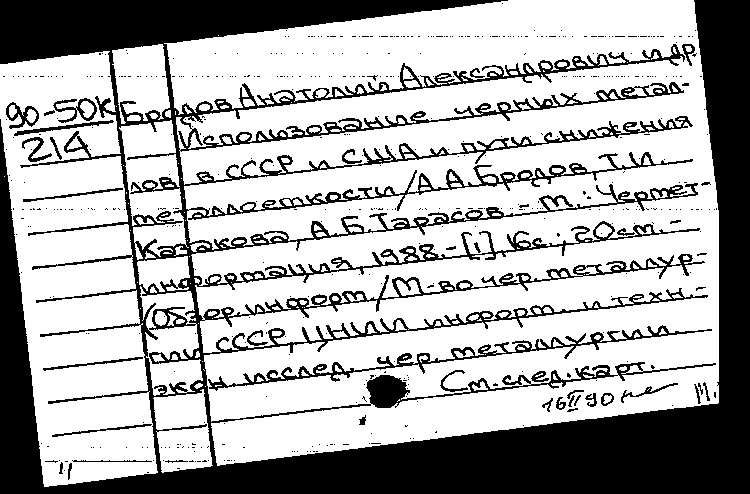 90-50К Бродов, Анатолий Александрович и др.
214 Использование черных метал-
лов в СССР и США и пути снижения
металлоемкости / А.А. Бродов, Т.И.
Казакова, А.Б. Тарасов. - М.: Чермет-
информация, 1988. - [1], 16с.; 20см. -
(Обзор. информ. / М-во чер. металлур-
гии СССР, ЦНИИ информ. и техн.-
экон. исслед. чер. металлургии.
См. след. карт.
16 II 90
М.